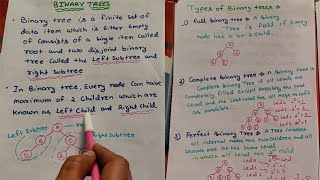 BINARY TREES
• Binary tree is a finite set of
data item which is either empty
of consists of a single item called
root and two disjoint binary
tree called the Left subtree and
right subtree
• In Binary tree, Every node can have
maximum of 2 children which are
known as Left child and Right child
Left Subtree
A
Right Subtree
Types of Binary trees
1) Full binary tree A Binary
Tree is Full if Every
node has 0 or 2 child.
2) Complete Binary tree
completely filled Except possibly the last
Level and the last Level has all keys as left
as possible
3) Perfect Binary Tree A Tree in which
all internal nodes has two children and all
leaves are at the same Level